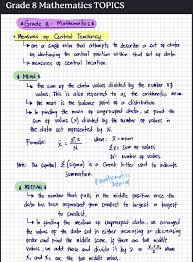 Grade 8 Mathematics TOPICS
Grade 8 - Mathematics
• Measures of Central Tendency
↳ are a single value that attempts to describe a set of data
by identifying the central position within that set of data
↳ measures of central location.
MEAN
↳ the sum of the data values divided by the number of
values. This is also referred to as the arithmetic average
↳ the mean is the balance point of a distribution.
↳ In finding the mean of ungrouped data, we find the
sum of values (x) divided by the number of values in
the data set represented by N.
Formula: x̄ = Σx / N where: x̄ = mean
Σx = sum of values
N = number of values.
Note: The symbol Σ (sigma) is a Greek letter used to indicate
summation.
MEDIAN
↳ the number that falls in the middle position once the
data has been organized from smallest to largest or largest
to smallest.
↳ In finding the median of ungrouped data, we arrange
the values of the data set in either increasing or decreasing
order and find the middle score. If there are two middle
values, we add those and divide by 2